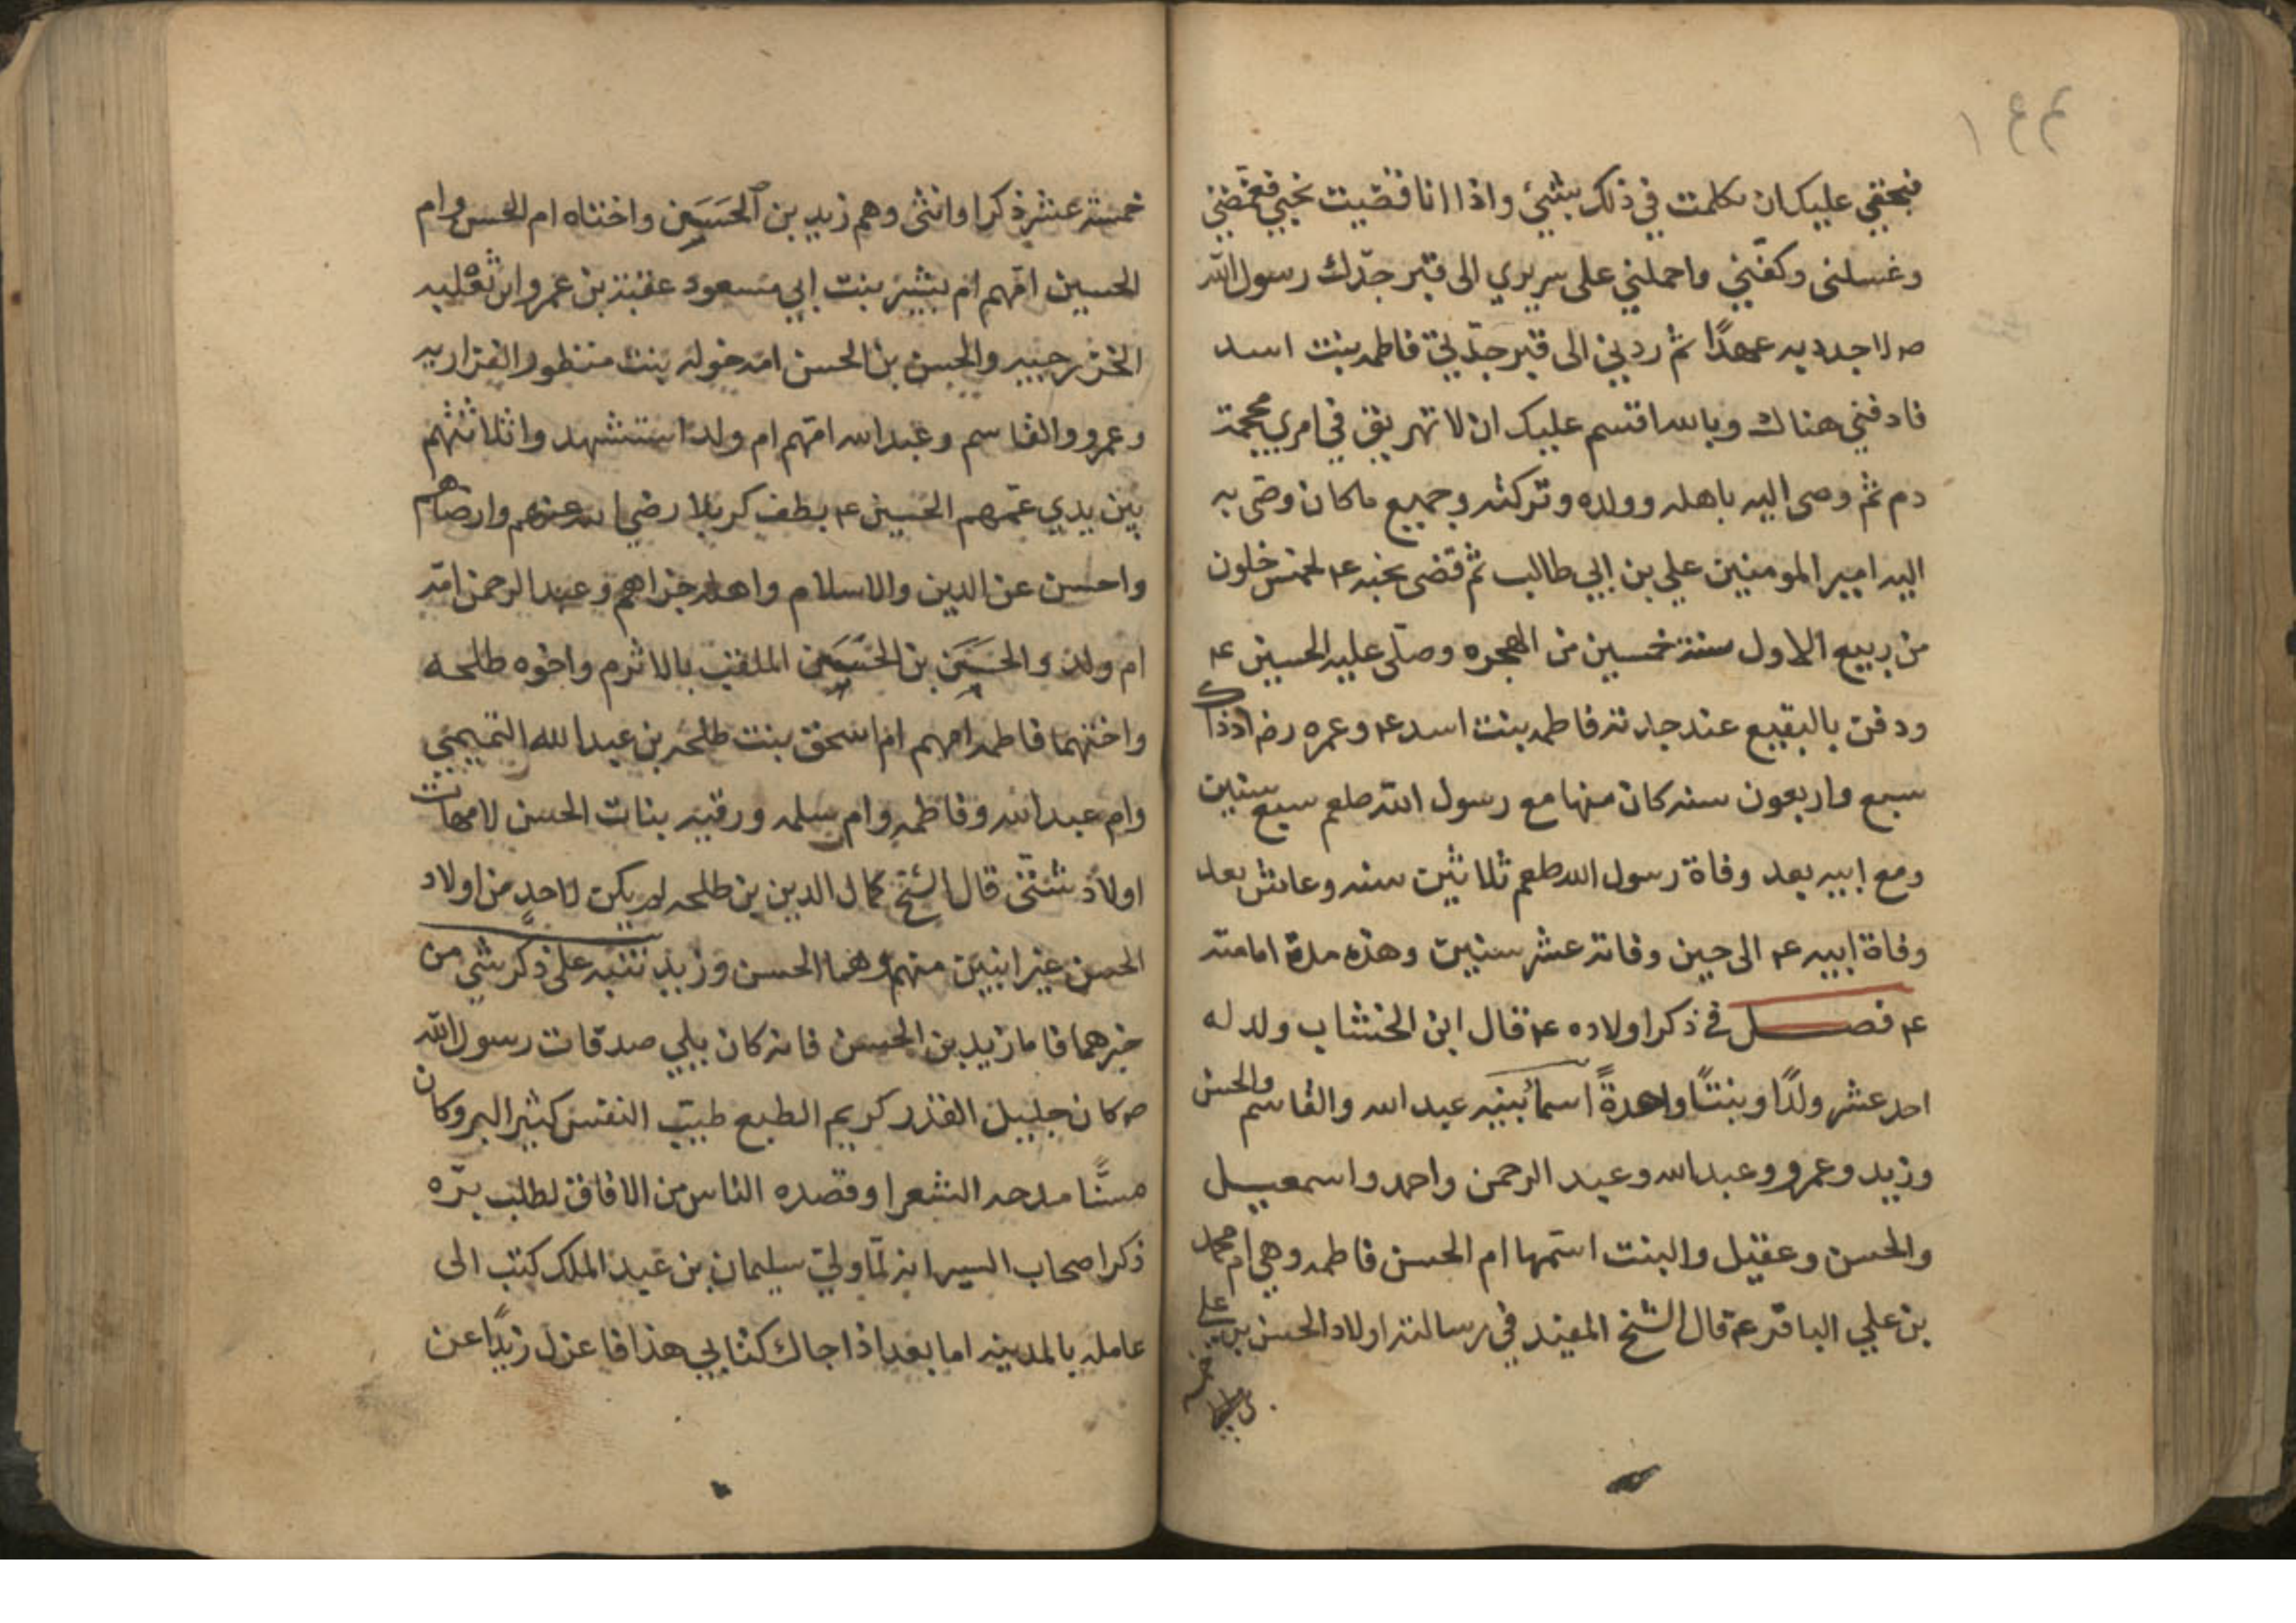 فبحقي عليك ان تكلمت في ذلك بشيئ واذا انا قضيت نحبي فغمضني
وغسلني وكفّني واحملني على سريري الى قبر جدّك رسول الله
ص لاجدد به عهدًا ثم ردني الى قبر جدّتي فاطمه بنت اسد
فادفني هناك وبالله اقسم عليك ان لا تهريق في امري محجمة
دم ثم وصى اليه باهله وولده وتركته وجميع ماكان وصّى به
اليه امير المومنين علي بن ابي طالب ثم قضى نحبه ع لخمس خلون
من ربيع الاول سنة خمسين من الهجره وصلّى عليه الحسين ع
ودفن بالبقيع عند جدته فاطمه بنت اسد ع وعمره رض اذ ذاك
سبع واربعون سنه كان منها مع رسول الله صلعم سبع سنين
ومع ابيه بعد وفاة رسول الله صلعم ثلاثين سنه وعاش بعد
وفاة ابيه ع الى حين وفاته عشر سنين وهذه مدة امامته
ع فصل في ذكر اولاده ع قال ابن الخشاب ولد له
احد عشر ولدًا وبنتًا واحدةً اسمآ بنيه عبد الله والقاسم والحسن
وزيد وعمرو وعبدالله وعبد الرحمن واحمد واسمعيل
والحسن وعقيل والبنت اسمها ام الحسن فاطمه وهي ام محمد
بن علي الباقر ع قال الشيخ المفيد في رسالته اولاد الحسن بن علي
خمسة عشر ذكرا وانثى وهم زيد بن الحسن واختاه ام الحسن وام
الحسين امّهم ام بشر بنت ابي مسعود عقبة بن عمرو ابن ثعلبه
الخزرجييه والحسن بن الحسن امه خوله بنت منظور الفزاريه
وعمرو والقاسم وعبدالله امّهم ام ولد استشهد واثلاثتهم
بين يدي عمّهم الحسين ع بطف كربلا رضي الله عنهم وارضاهم
واحسن عن الدين والاسلام واهله جزاهم وعبد الرحمن امّه
ام ولد والحسين بن الحسن الملقب بالاثرم واخوه طلحه
واختهما فاطمه امهم ام اسحق بنت طلحه بن عبد الله التميمي
وام عبدالله وفاطمه وام سلمه ورقيه بنات الحسن لامهات
اولاد شتّى قال الشيخ كمال الدين بن طلحه لم يكن لاحدٍ من اولاد
الحسن غير ابنين منهم وهما الحسن وزيد تنبه على ذكر شي من
خبرهما فاما زيد بن الحسن فانه كان يلي صدقات رسول الله
ص كان جليل القدر كريم الطبع طيب النفس كثير البر وكان
مسنًّا مدحه الشعرا وقصده الناس من الافاق لطلب برّه
ذكر اصحاب السير انه لمّا ولي سليمان بن عبد الملك كتب الى
عامله بالمدينه اما بعد اذا جاك كتابي هذا فاعزل زيدًا عن